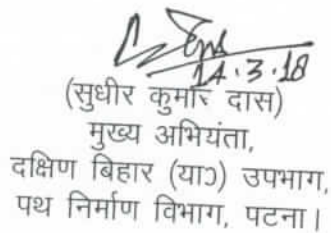 14.3.18
(सुधीर कुमार दास)
मुख्य अभियंता,
दक्षिण बिहार (या०) उपभाग,
पथ निर्माण विभाग, पटना।